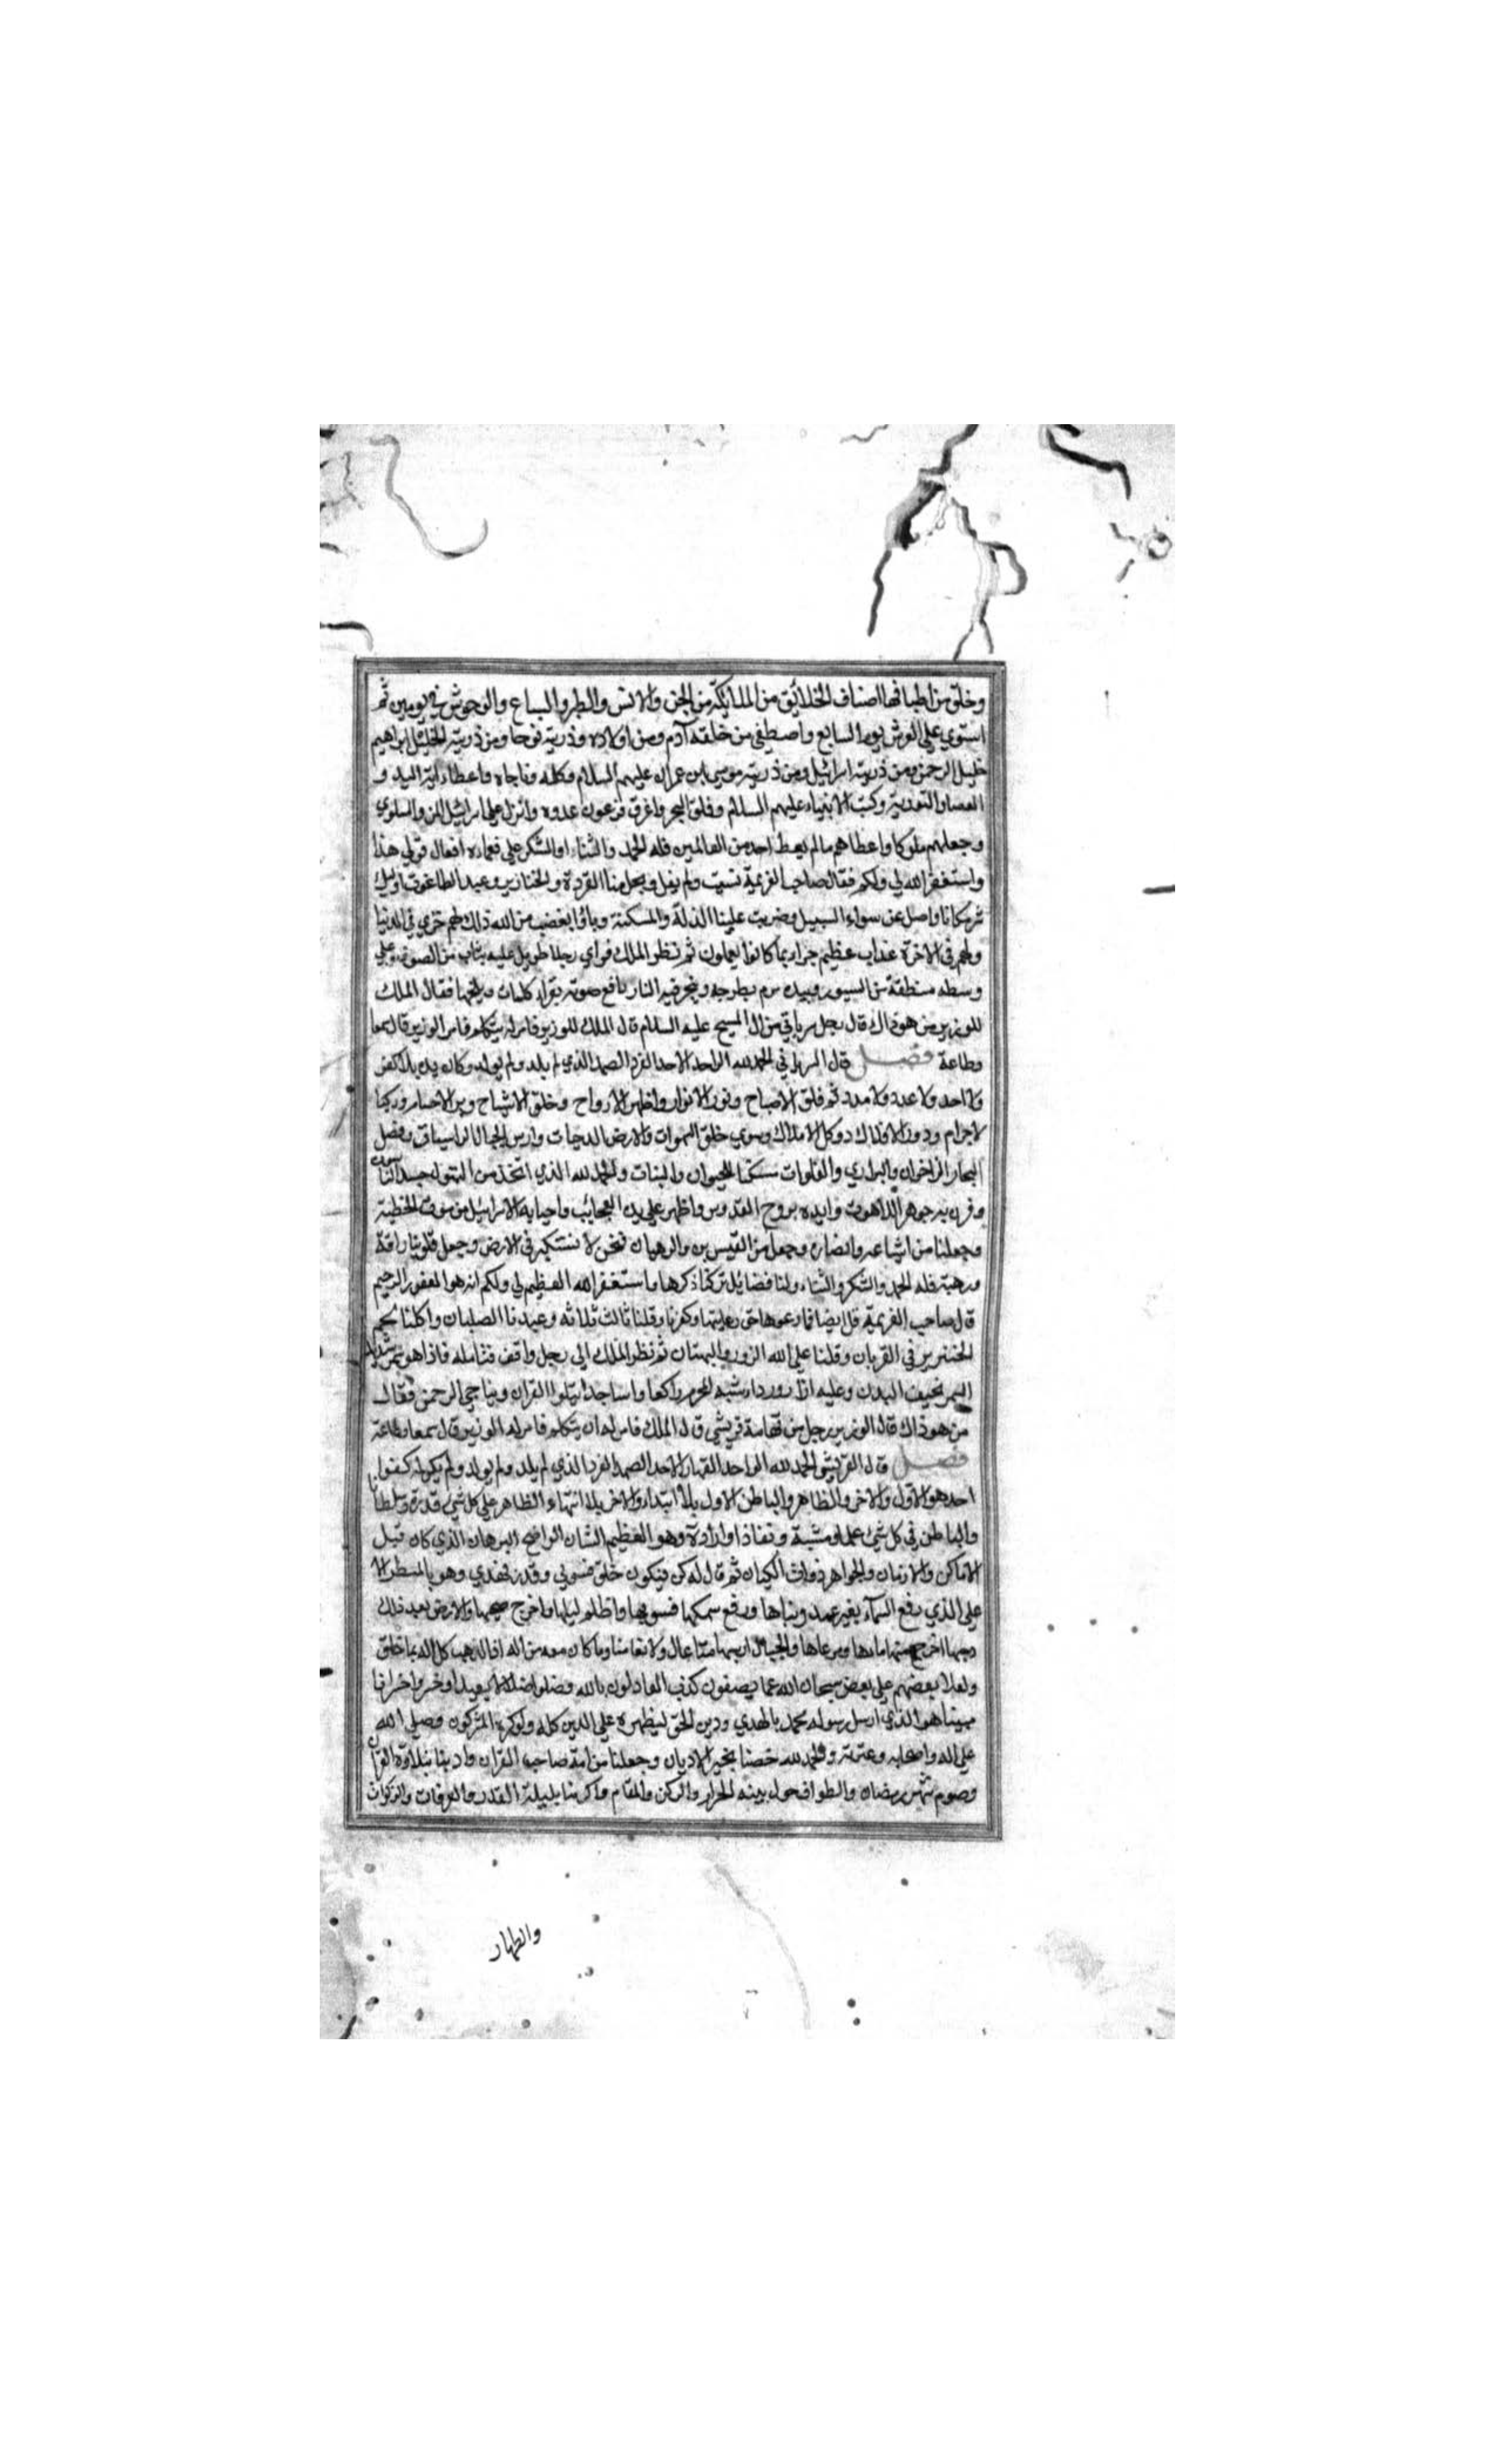 وخلق من اطباقها اصناف الخلائق من الملائكة من الجن والانس والطير والسباع والوحوش في يومين ثم
استوي علي العرش يوم السابع واصطفي من خلقه آدم ومن اولاده وذريته نوحا ومن ذريته الخليل ابراهيم
خليل الرحمن ومن ذريته اسرائيل ومن ذريته موسي ابن عمران عليهم السلام وكلمه وناجاه واعطاه اية اليد و
العصا والتورية وكتب الانبياء عليهم السلام وفلق البحر واغرق فرعون عدوه وانزل علي اسرائيل المن والسلوي
وجعلهم ملوكا واعطاهم مالم يعط احد من العالمين فله الحمد والثناء والشكر علي نعمائه اقول قولي هذا
واستغفر الله لي ولكم فقال صاحب العزيمة نسيت ولم يقل وجعل منا القردة والخنازير وعبد الطاغوت اوليك
شر مكانا واضل عن سواء السبيل وضربت علينا الذلة والمسكنة وباؤا بغضب من الله ذلك لهم خزي في الدنيا
ولهم في الاخرة عذاب عظيم جزاء بما كانوا يعملون ثم نظر الملك فراي رجلا طويل عليه ثياب من الصوف وعلي
وسطه منطقة من السيور وبيده يبخر فيه النار رافع صوته يقراء كلمات ويلحنها فقال الملك
للوزير من هو ذاك قال رجل سرياني من ال المسيح عليه السلام قال الملك للوزير فامره يتكلم فامر الوزير قال سمعا
وطاعة فصل قال السرياني الحمد لله الواحد الاحد الفرد الصمد الذي لم يلد ولم يولد وكان بلا كفو
ولا احد ولا عدد ولا مدد ثم فلق الاصباح ونور الانوار واظهر الارواح وخلق الاشباح الاجسام وركب
الاجرام ودور الافلاك ووكل الاملاك وسوي خلق السموات والارض المدحيات وارس الجبال الراسيات وفصل
البحار الزاخران والبراري والفلوات مسكنا للحيوان والنبات والحمد لله الذي اتخذ من البتول جسد الناسوت
وقرن به جوهر اللاهوت وايده بروح القدوس واظهر علي يده العجائب واحيا به ال اسرائيل من موت الخطية
وجعلنا من اشياعه وانصاره وجعل من القسيسين والرهبان فنحن لا نستكبر في الارض وجعل قلوبنا رافة
ورهبة فله الحمد والشكر والثناء ولنا فضايل تركنا ذكرها واستغفر الله العظيم لي ولكم انه هو الغفور الرحيم
قال صاحب العزيمة قل ايضا فما رعوها حق رعايتها وكفرنا وقلنا ثالث ثلاثه وعبدنا الصلبان واكلنا لحم
الخنزير في القربان وقلنا علي الله الزور والبهتان ثم نظر الملك الي رجل واقف فتامله فاذا هو شديد
السمر نحيف البدن وعليه ازار ورداء شبه المحرم راكعا وساجدا يتلوا القران ويناجي الرحمن فقال
من هو ذاك قال الوزير رجل من تهامة قريشي قال الملك فامره ان يتكلم فامره الوزير وقال سمعا وطاعة
فصل قال القريشي الحمد لله الواحد القهار الاحد الصمد الفرد الذي لم يلد ولم يولد ولم يكن له كفوا
احد هو الاول والاخر والظاهر والباطن الاول بلا ابتداء والاخر بلا انتهاء الظاهر علي كل شيء قدرة وسلطانا
والباطن في كل شيء علما ومشية ونفاذا وارادة وهو العظيم الشان الواضح البرهان الذي كان قبل
الاماكن والازمان والجواهر ذوات الكيان ثم قال له كن فيكون خلق فسوي وقدر فهدي وهو بالمنظر الا
علي الذي رفع السمآء بغير عمد وبناها ورفع سمكها فسويها واظلم ليلها واخرج ضحيها والارض بعد ذلك
دحيها اخرج منها ماءها ومرعاها والجبال ارسيها متاعا لنا ولانعامنا وما كان معه من اله اذا لذهب كل اله بما خلق
ولعلا بعضهم علي بعض سبحان الله عما يصفون كذب العادلون بالله وضلوا ضلالا بعيدا وخسروا خسرانا
مبينا هو الذي ارسل رسوله محمد بالهدي ودين الحق ليظهره علي الدين كله ولو كره المشركون وصلي الله
علي اله واصحابه وعترته والحمد لله خصنا بخير الاديان وجعلنا من امة صاحب القران وادبنا بتلاوة القران
وصوم شهر رمضان والطواف حول بيته الحرام والركن والمقام واكرمنا بليلة القدر والعرفات والزكوات
والطهار